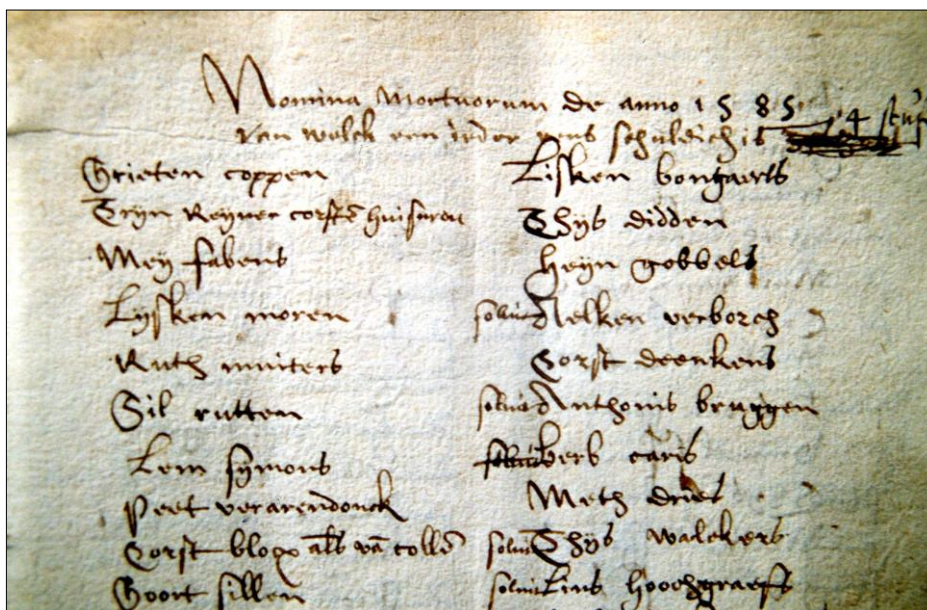 Nomina Mortuorum de anno 1585
Van welck een ider ens schuldich is 4 stuf
Grieten coppen
Tryn Reyner corste huisurou
Mey fabens
Lysken moren
Ruth muiters
Gil rutten
Lem symons
Peet verarendonck
Corst blopp als vā collē
Goort sillen
Lisken bongaerts
Thys didden
Heyn gobbels
soluit Nelken verborch
Corst deenkens
soluit Anthonis bruggen
bers caris
Meth dries
soluit Thys walckers
soluit Lins hoochgraefs